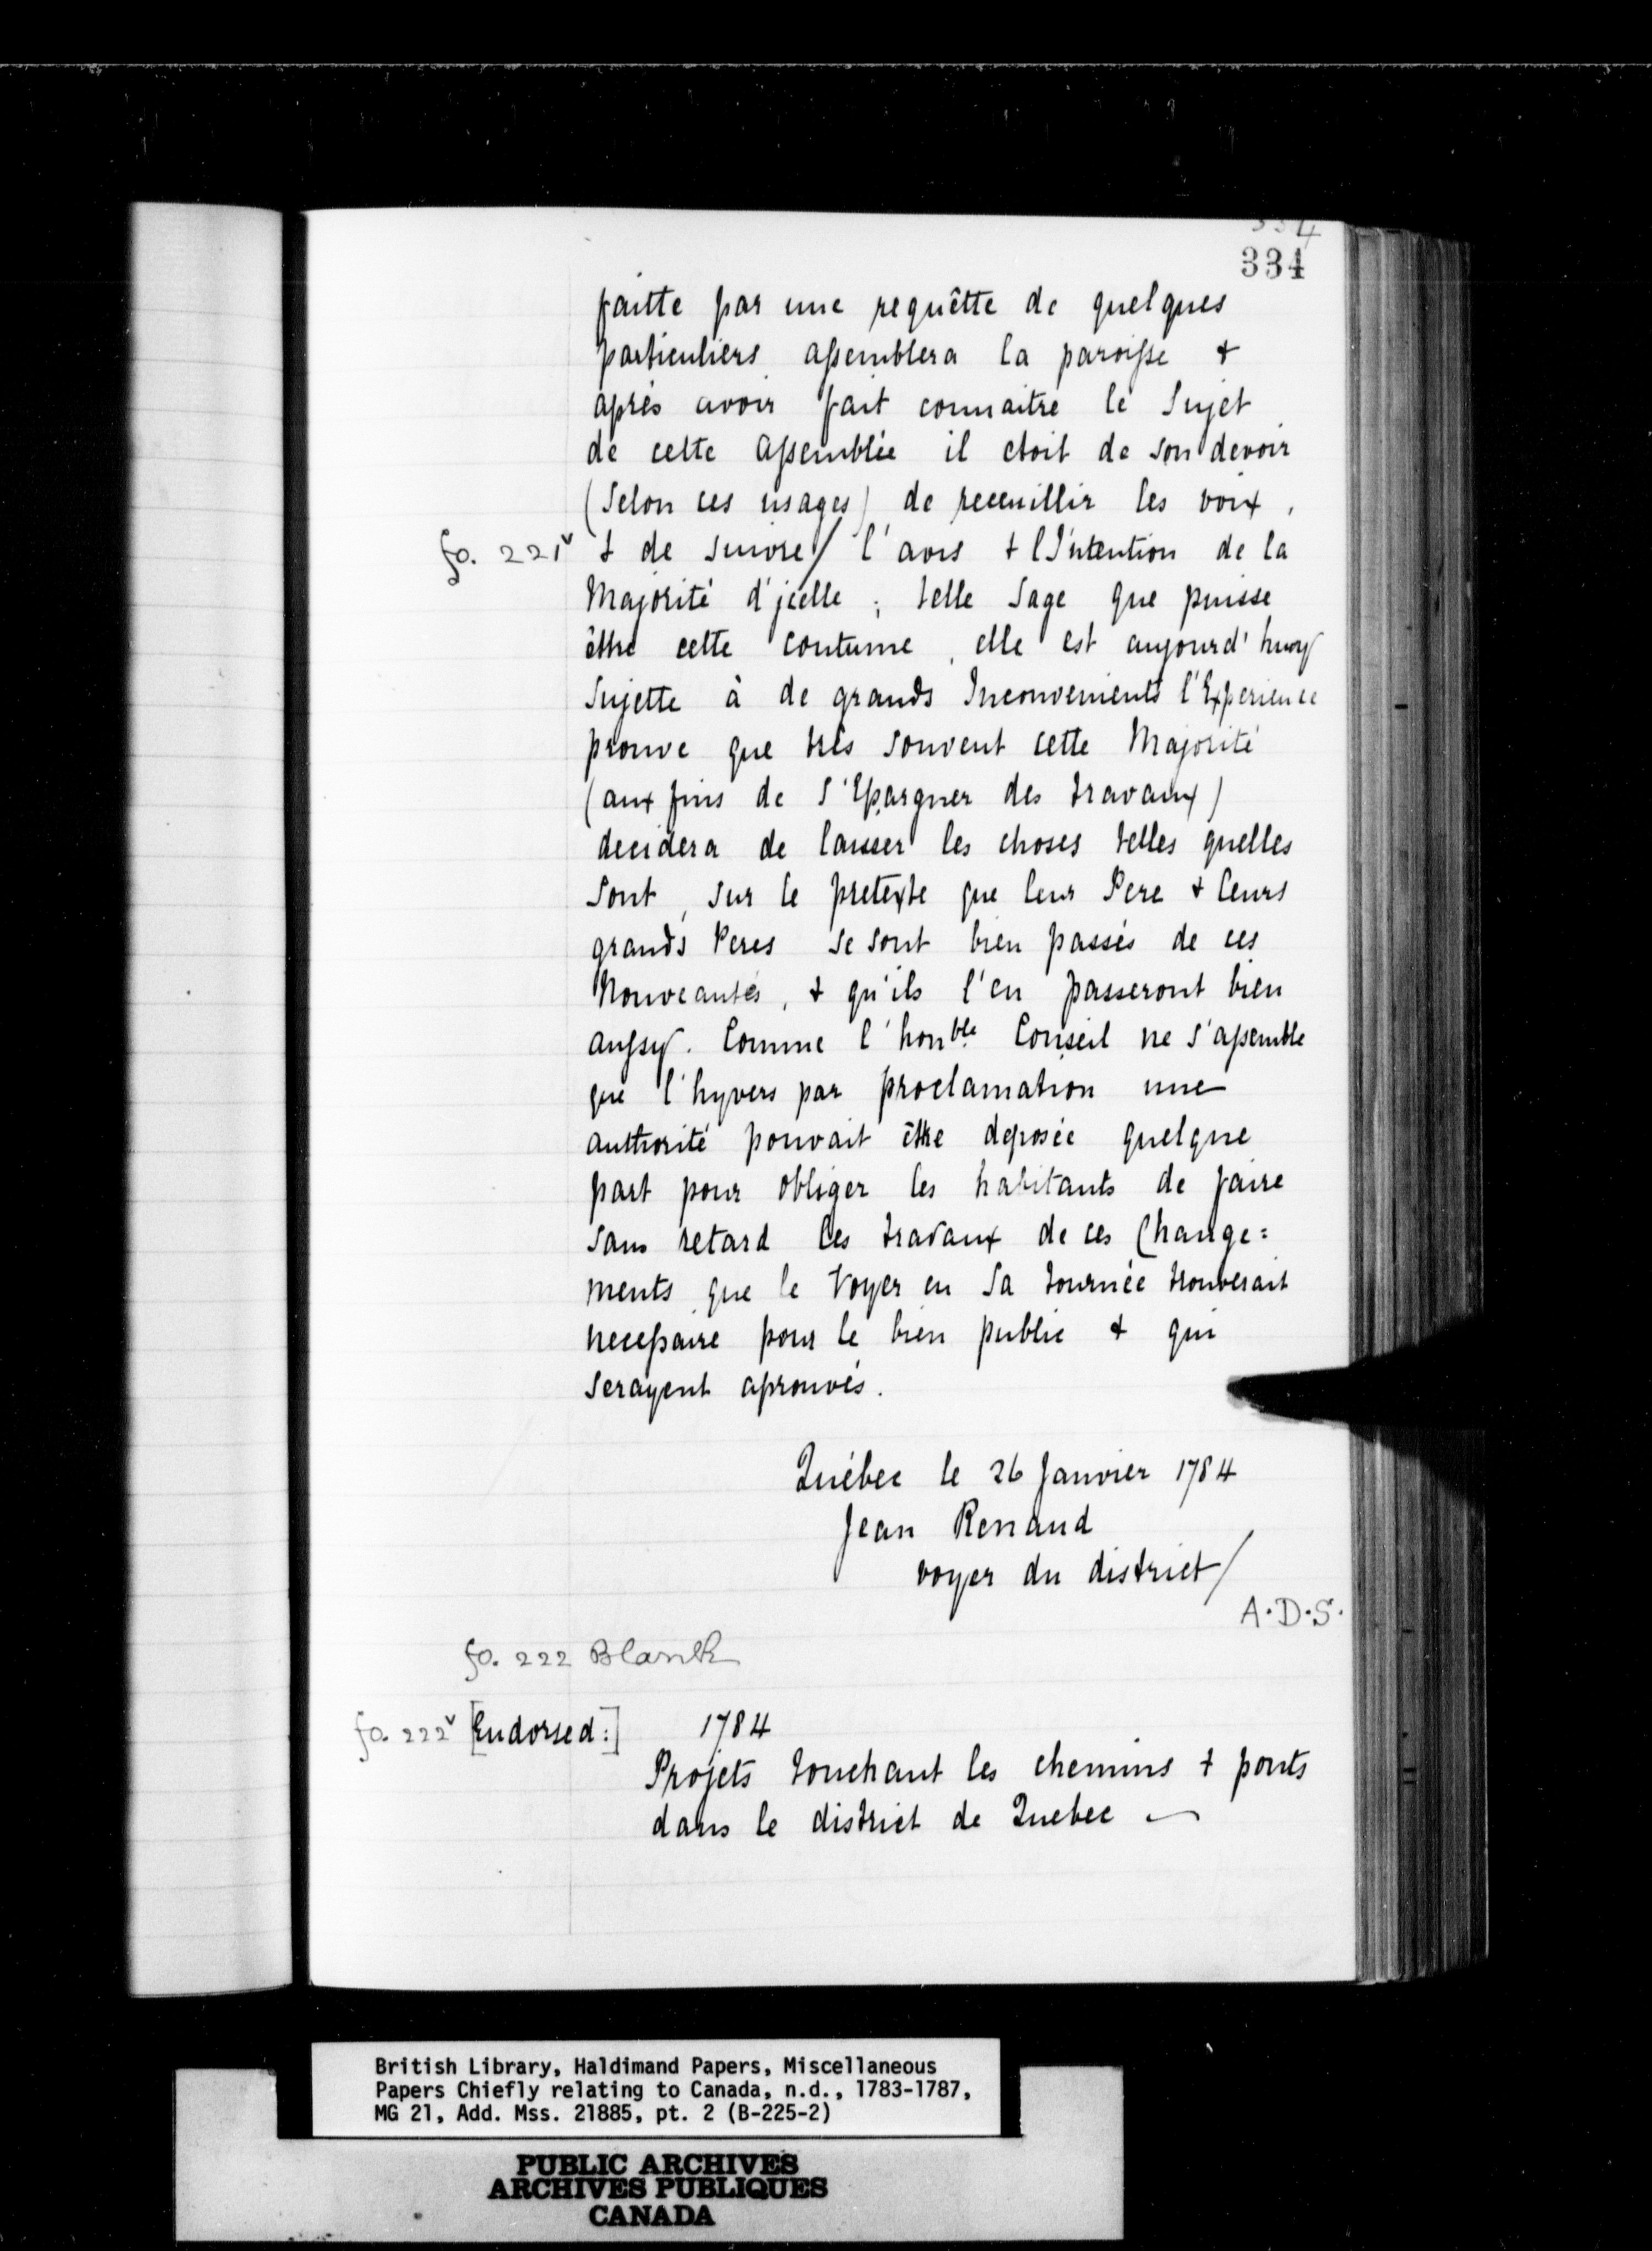 334
334
faitte par une requêtte de quelques
particuliers assemblera la paroisse &
après avoir fait connaitre le Sujet
de cette Assemblée il etoit de son devoir
(Selon ces usages) de receuillir les voix,
fo. 221v & de suivre/ l'avis & l'Intention de la
Majorité d'jcelle; telle Sage que puisse
être cette coutume, elle est aujourd'huy
Sujette à de grands Inconvenients l'Experience
prouve que très souvent cette Majorité
(aux fins de S'Epargner des travaux)
decidera de laisser les choses telles quelles
Sont, sur le pretexte que leur Pere & leurs
grands Peres se sont bien passés de ces
Nouveautés, & qu'ils l'en passeront bien
aussy. Comme l'honble Conseil ne s'assemble
que l'hyvers par proclamation une
authorité pouvait être deposée quelque
part pour obliger les habitants de faire
sans retard les travaux de ces Change=
ments que le Voyer en Sa tournée trouverait
necessaire pour le bien public & qui
serayent aprouvés.
Québec le 26 Janvier 1784
Jean Renaud
voyer du district/
A.D.S.
fo. 222 Blank
fo. 222v [Endorsed:] 1784
Projets touchant les chemins & ponts
dans le district de Quebec
British Library, Haldimand Papers, Miscellaneous
Papers Chiefly relating to Canada, n.d., 1783-1787,
MG 21, Add. Mss. 21885, pt. 2 (B-225-2)
PUBLIC ARCHIVES
ARCHIVES PUBLIQUES
CANADA